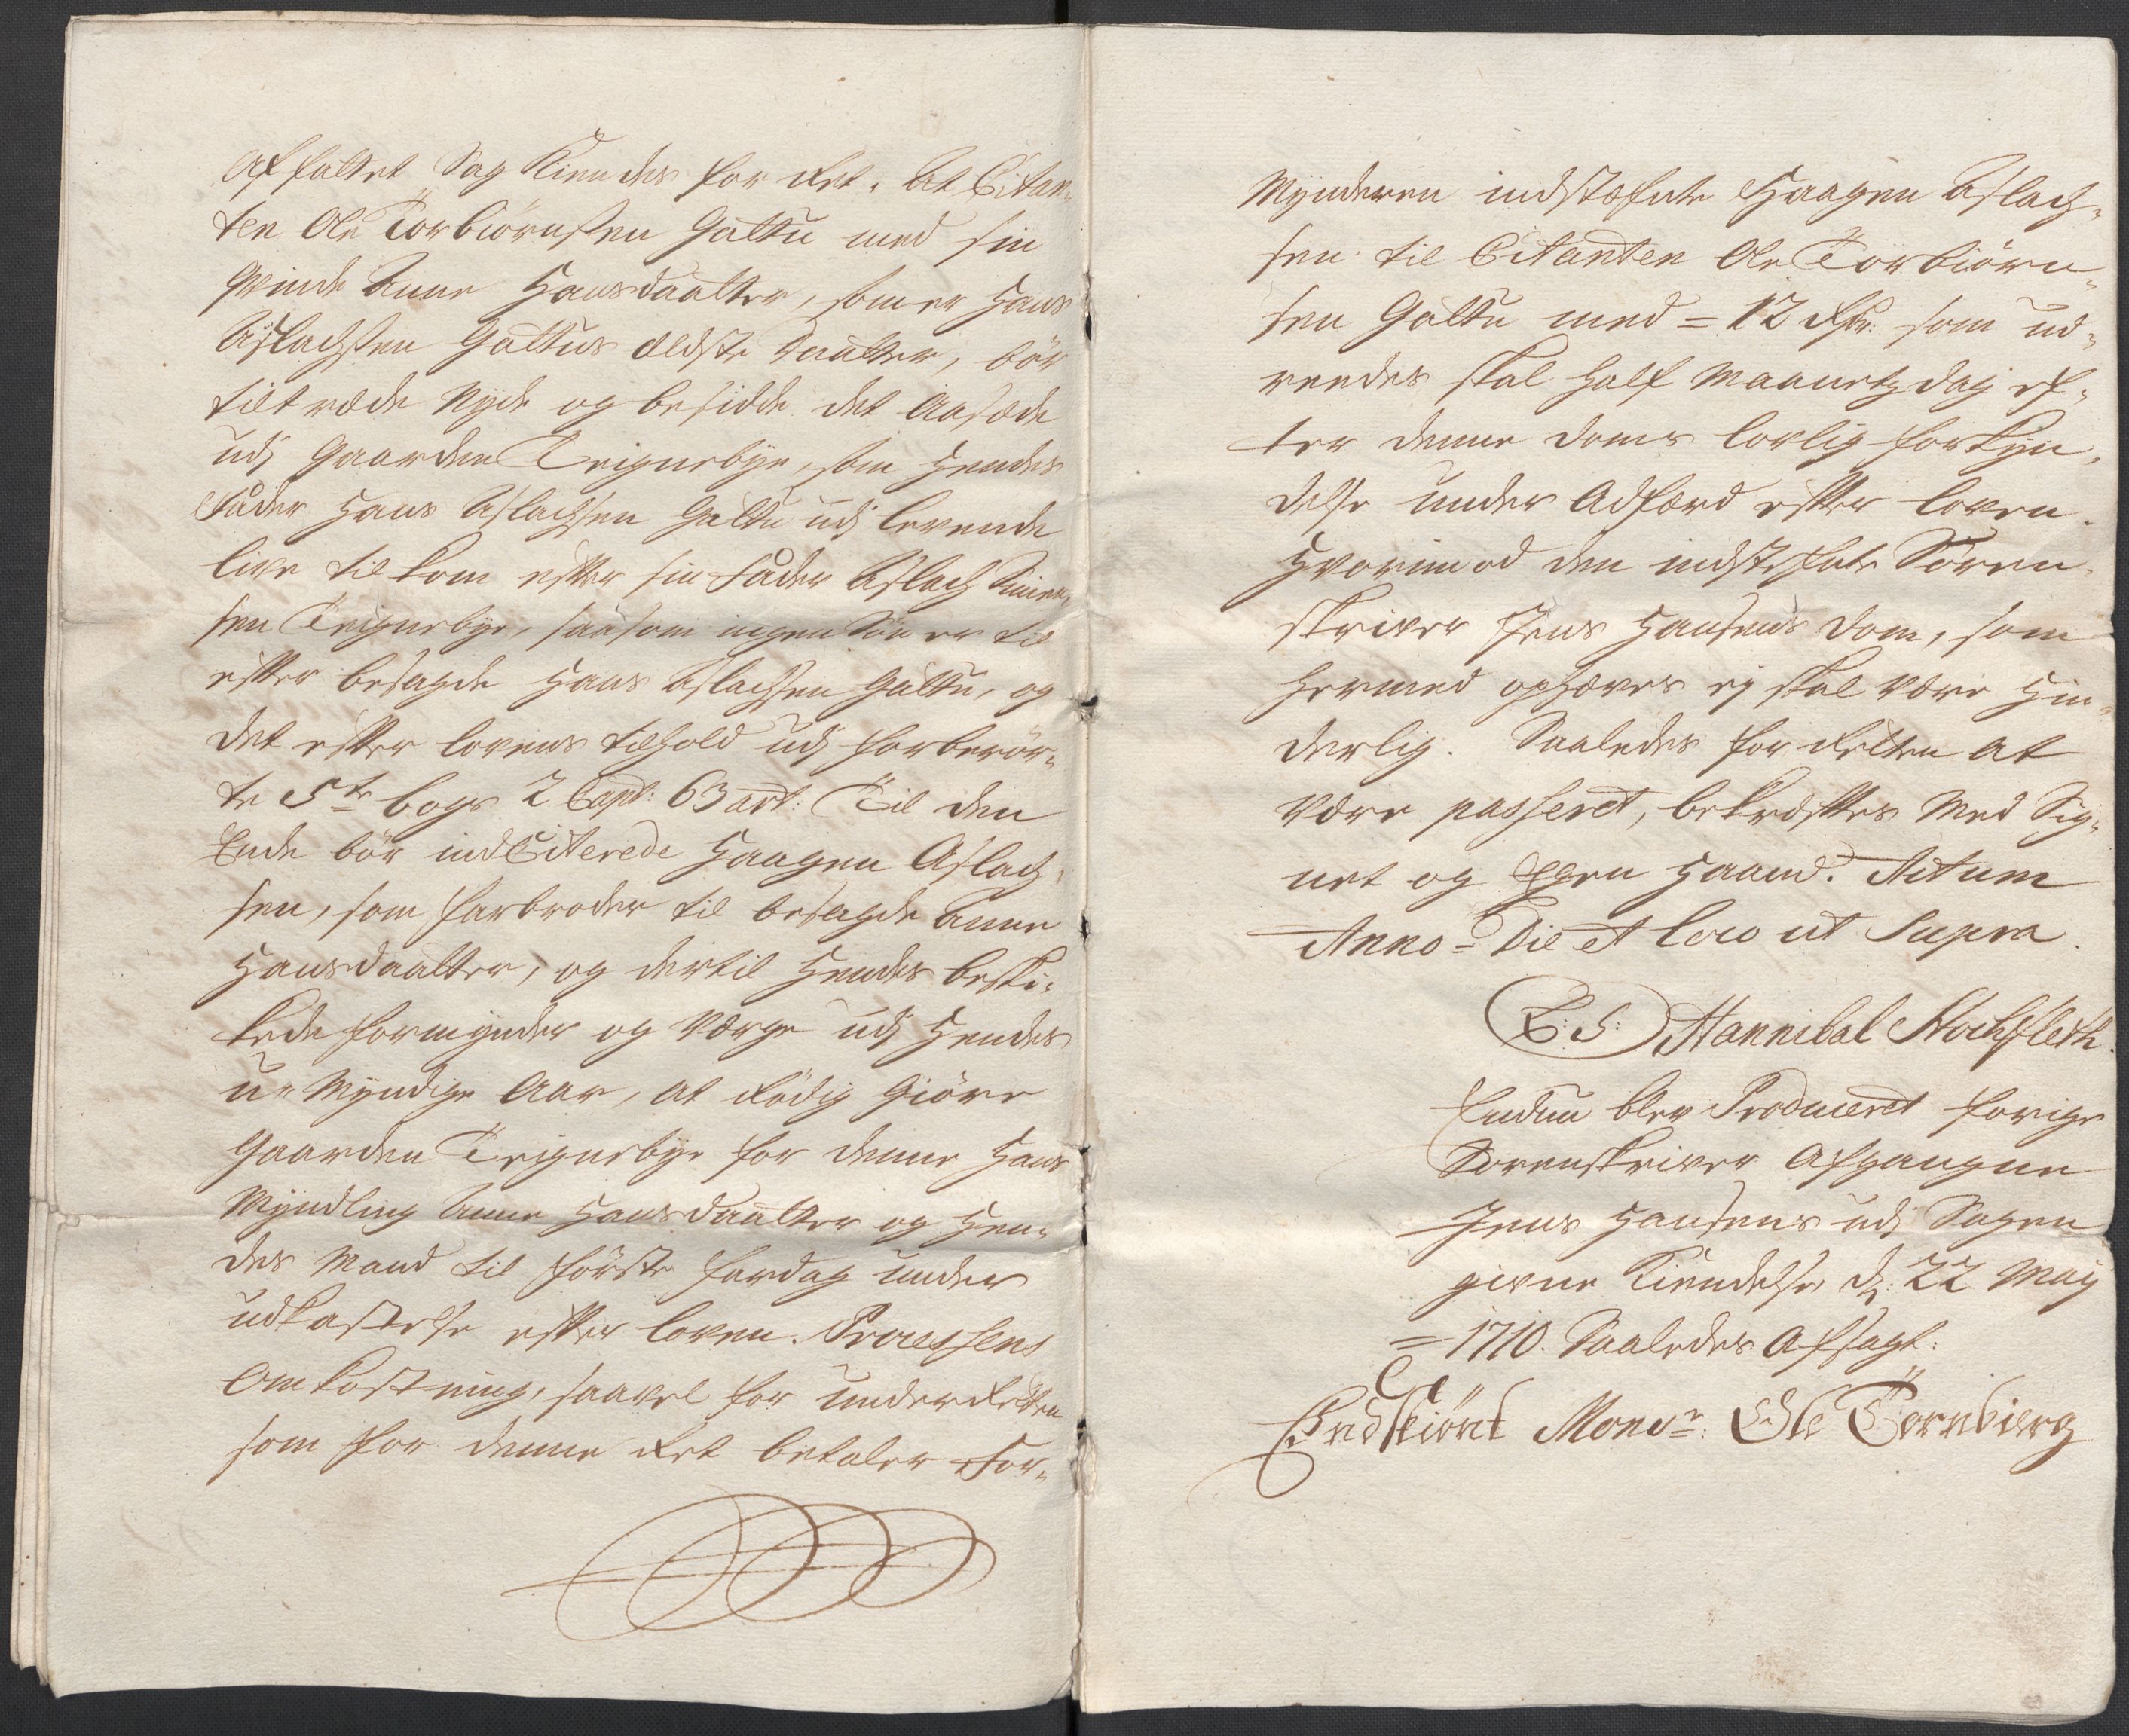 affattet Sag Kiendes for Ret, at Citan-
ten Ole Torbiörnsen Galtu med sin
Qvinde Anne Hansdaatter, som er Hans
Aslachsen Galtus ældste Daatter, bör
tiltræde Nyde og besidde det Aasæde
udj Gaarden Teignebye, som Hendes
Fader Hans Aslachsen Galtu udj levende
live tilkom efter sin Fader Aslach
sen Teignebye, saasom ingen Sön er til
efter besagde Hans Aslachsen Galtu, og
det efter lovens tilhold udj forberör-
te 5te bogs 2 Capt: 63 art: Til den
Ende bör indCiterede Haagen Aslach-
sen, som farbroder til besagde Anne
Hansdaatter, og dertil Hendes beski-
kede formynder og Værge udj Hendes
u-Myndige Aar, at Rödig Giöre
Gaarden Teignebye for denne Hans
Myndling Anne Hansdaatter og Hen-
des Mand til förste fardag under
udkastelse efter loven. Processens
Omkostning, saavel for underRetten
som for denne Ret betaler For-
Mynderen indstefnte Haagen Aslach-
sen til Citanten Ole Torbiörn-
sen Galtu med = 12 Rdr. som ud-
reedes skal Half Maanetz dag ef-
ter denne doms lovlig forkyn-
delse under Adfærd efter loven.
Hvorimod den indstefnte Sören-
skriver Jens Hansens dom, som
Hermed ophæves ej skal være Hin-
derlig. Saaledes for Retten at
være passeret, bekræftes med Sig-
net og Egen Haand. Actum
Anno = Die et loco ut Supra.
L: S: Hannibal Stochfleth.
Endnu blev Produceret forige
Sorenskriver Afgangne
Jens Hansens udj Sagen
givne Kiendelse d: 22 Maij
= 1710. Saaledes Afsagt:
Endskiönt Monsr: Ole Törnbierg